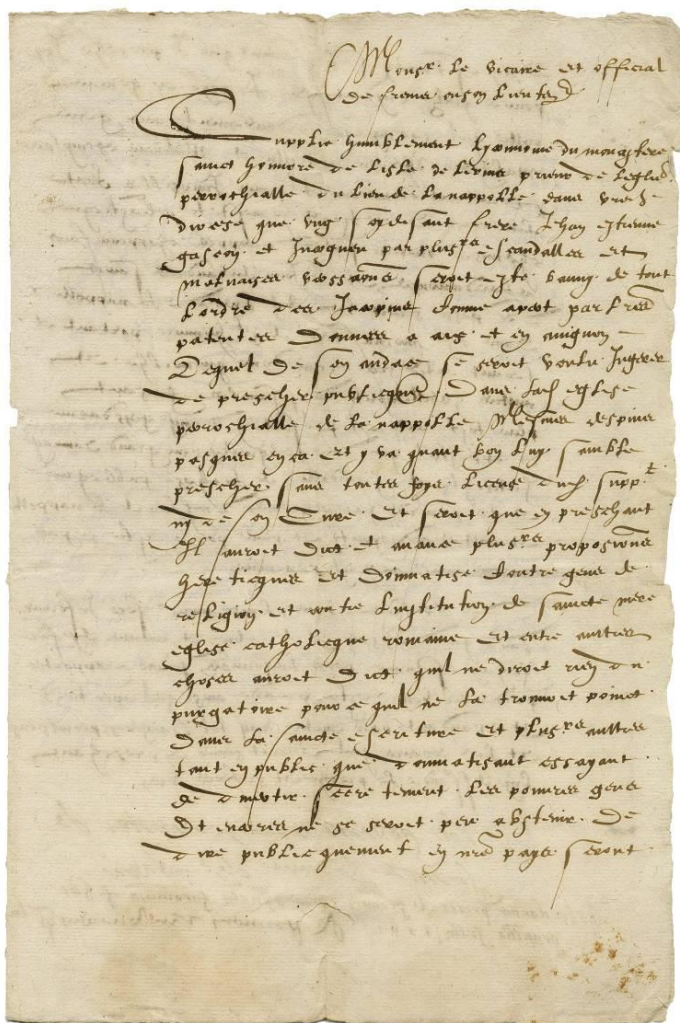 Monsr le vicaire et official
de Freius ou son lieuten
Supplie humblement du monastere
sainct honnore de Lisle de Lerins prieur de leglise
perrochialle du lieu de La nappolle dans vre d
diocese que ung soy disant frere Jehan
gascon et par plusrs escandalles et
maluaises seroit este banny de tout
lordre des par lres
patentes donnees a aix et en auignon
Lequel de son audace se seroit voulu Ingerer
de prescher publicqment dans lad eglise
perrochialle de la nappolle despuis
pasques en ca et y va quant bon luy samble
prescher sans toutes foys licence dud suppt
ny de son Cure Et seroit que en preschant
Il auroit dict et auance plusrs propositions
hereticques et dogmatise contre gens de
religion et contre Linstitution de saincte mere
eglise catholicque romaine et entre aultres
choses auroit dict quil ne diroit rien du
purgatoire pour ce quil ne la trouuoit poinct
dans la saincte escriture et plusrs aultres
tant en public que domatisant essayant
de secretement les pouures gens
Et encores ne se seroit peu abstenir de
dire publicquement en nre pays seront